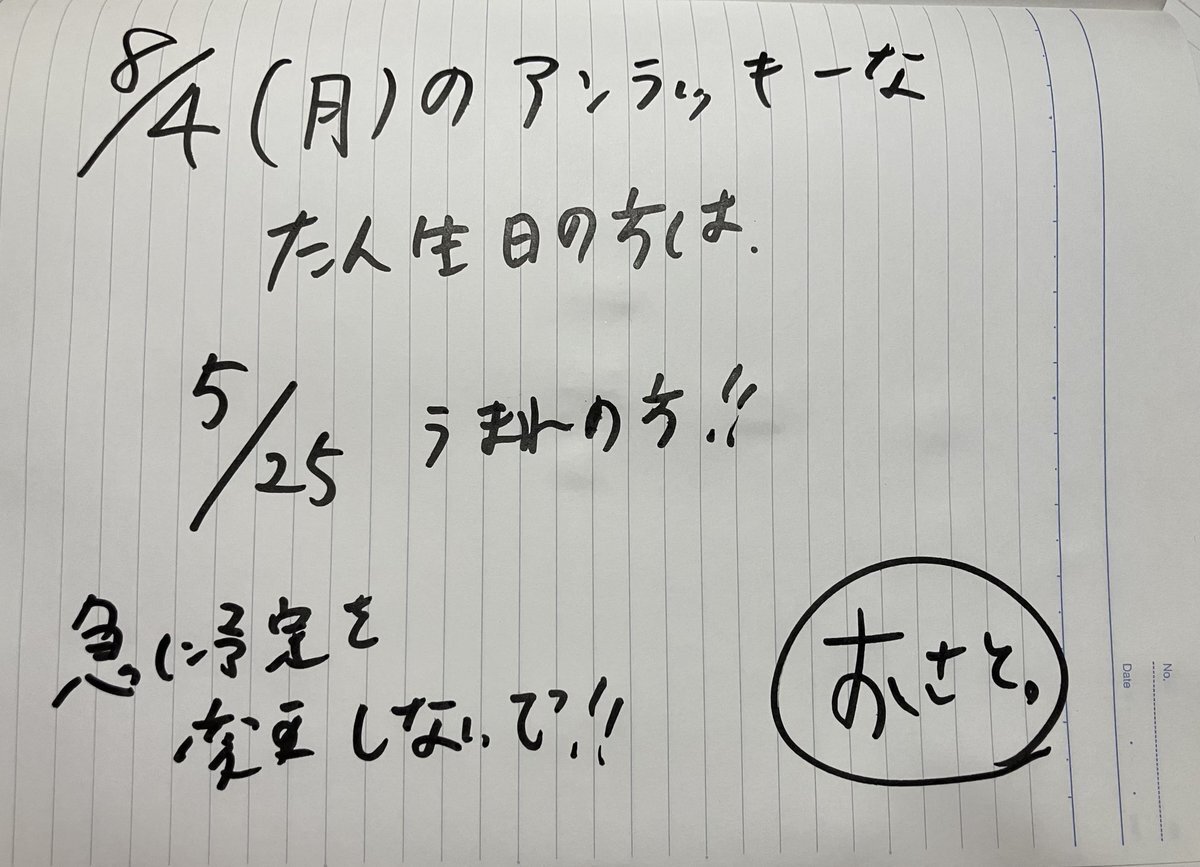 8/4(月)のアンラッキーな
たん生日の方は.
5/25 うまれの方!!
急に予定を
変更しないで!!
おさと。
No.
Date